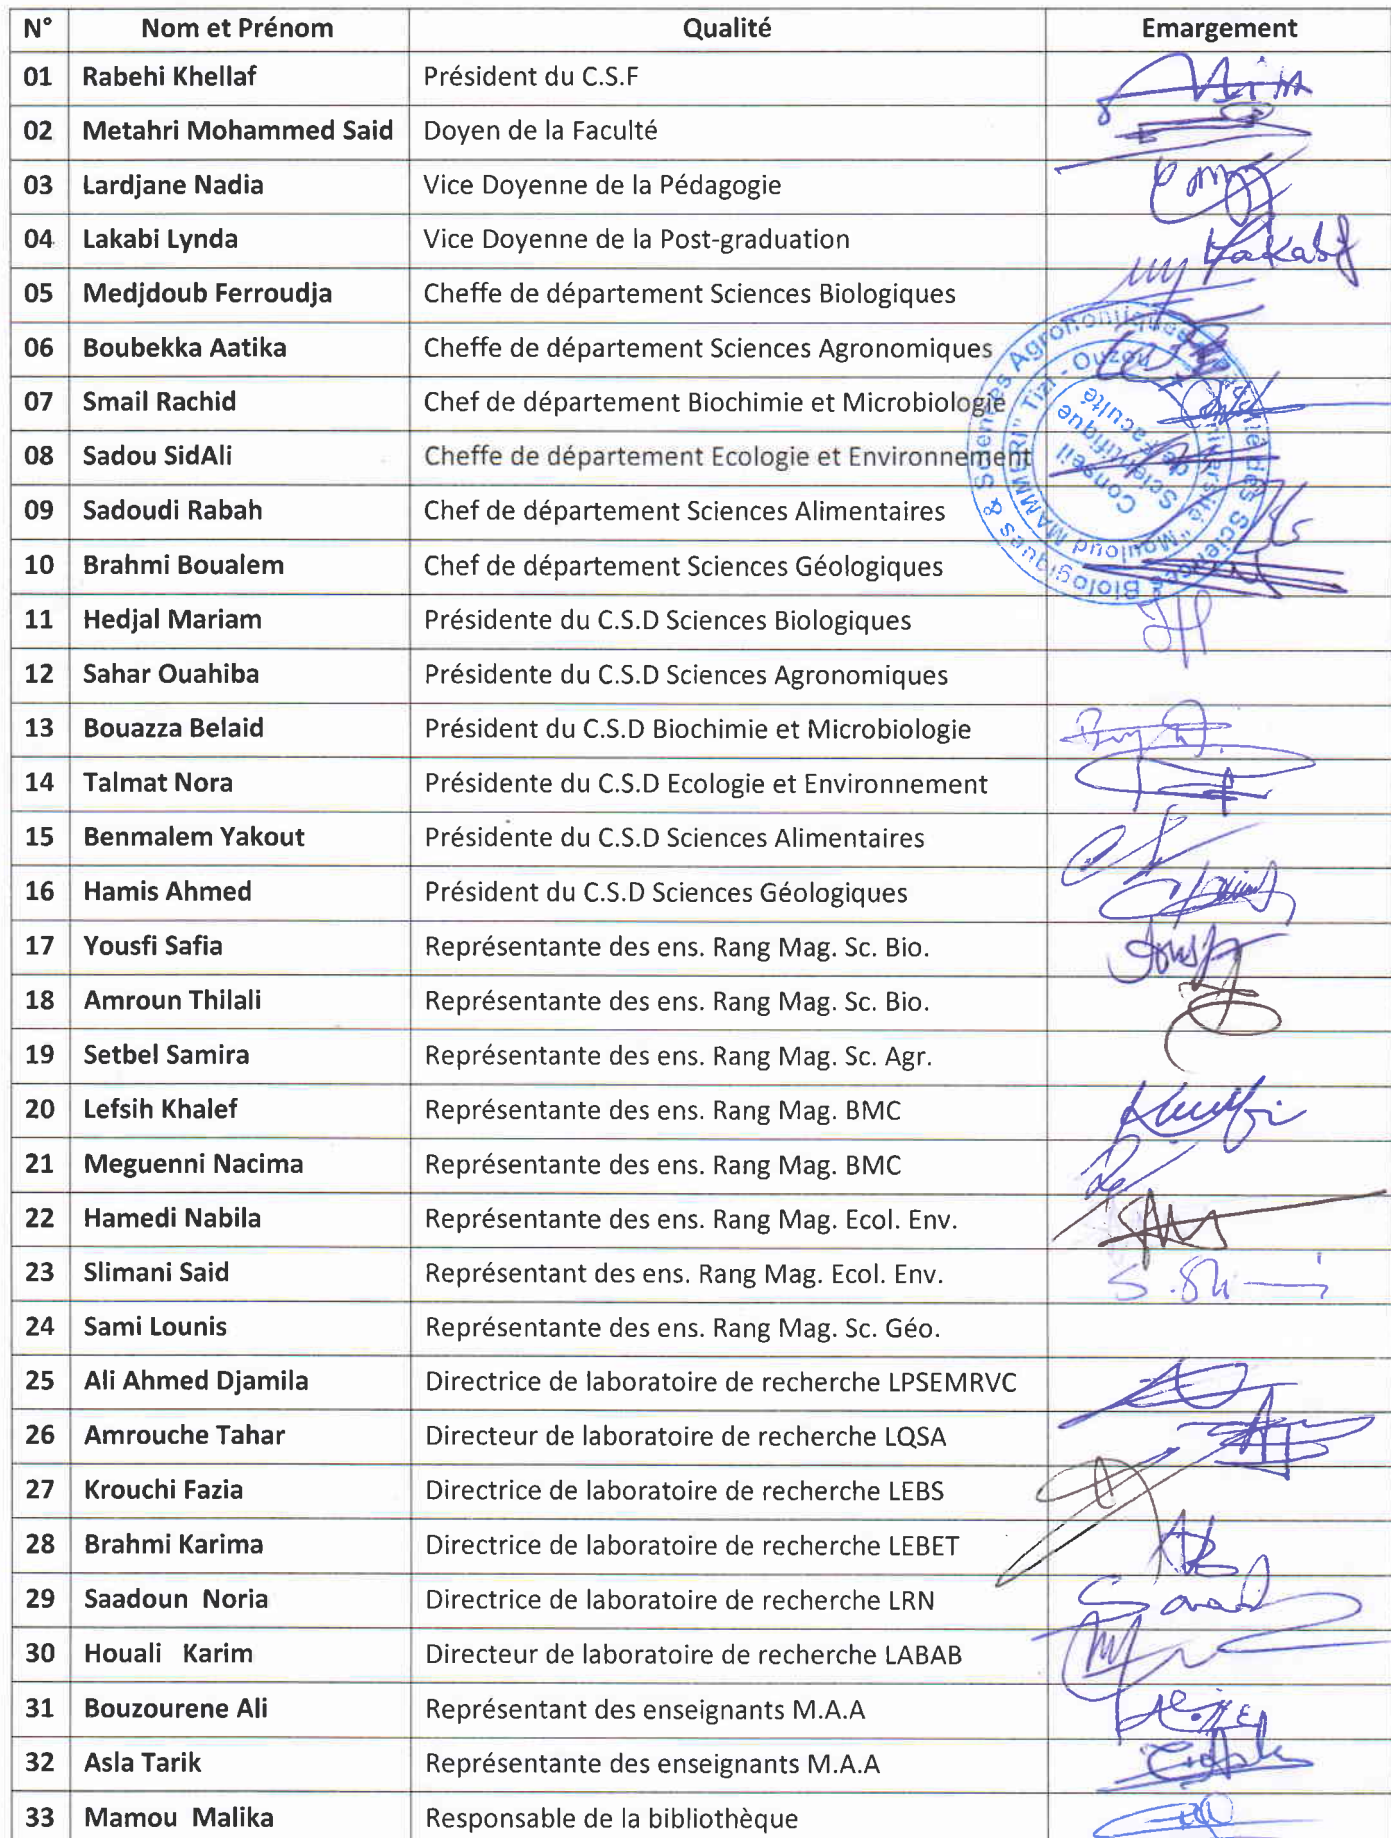 N° Nom et Prénom Qualité Emargement
01 Rabehi Khellaf Président du C.S.F
02 Metahri Mohammed Said Doyen de la Faculté
03 Lardjane Nadia Vice Doyenne de la Pédagogie
04 Lakabi Lynda Vice Doyenne de la Post-graduation Lakabi
05 Medjdoub Ferroudja Cheffe de département Sciences Biologiques
06 Boubekka Aatika Cheffe de département Sciences Agronomiques
07 Smail Rachid Chef de département Biochimie et Microbiologie
08 Sadou SidAli Cheffe de département Ecologie et Environnement
09 Sadoudi Rabah Chef de département Sciences Alimentaires
10 Brahmi Boualem Chef de département Sciences Géologiques
Sciences Biologiques & Sciences Agronomiques
Université "Mouloud MAMMERI" Tizi - Ouzou
Conseil
Scientifique
de Faculté
11 Hedjal Mariam Présidente du C.S.D Sciences Biologiques
12 Sahar Ouahiba Présidente du C.S.D Sciences Agronomiques
13 Bouazza Belaid Président du C.S.D Biochimie et Microbiologie
14 Talmat Nora Présidente du C.S.D Ecologie et Environnement
15 Benmalem Yakout Présidente du C.S.D Sciences Alimentaires
16 Hamis Ahmed Président du C.S.D Sciences Géologiques
17 Yousfi Safia Représentante des ens. Rang Mag. Sc. Bio.
18 Amroun Thilali Représentante des ens. Rang Mag. Sc. Bio.
19 Setbel Samira Représentante des ens. Rang Mag. Sc. Agr.
20 Lefsih Khalef Représentante des ens. Rang Mag. BMC
21 Meguenni Nacima Représentante des ens. Rang Mag. BMC
22 Hamedi Nabila Représentante des ens. Rang Mag. Ecol. Env.
23 Slimani Said Représentant des ens. Rang Mag. Ecol. Env.
24 Sami Lounis Représentante des ens. Rang Mag. Sc. Géo.
25 Ali Ahmed Djamila Directrice de laboratoire de recherche LPSEMRVC
26 Amrouche Tahar Directeur de laboratoire de recherche LQSA
27 Krouchi Fazia Directrice de laboratoire de recherche LEBS
28 Brahmi Karima Directrice de laboratoire de recherche LEBET
29 Saadoun Noria Directrice de laboratoire de recherche LRN
30 Houali Karim Directeur de laboratoire de recherche LABAB
31 Bouzourene Ali Représentant des enseignants M.A.A
32 Asla Tarik Représentante des enseignants M.A.A
33 Mamou Malika Responsable de la bibliothèque